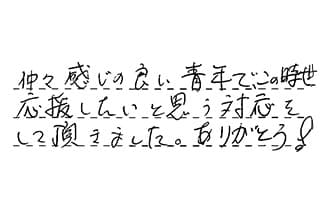 仲々感じの良い青年でこの時世
応援したいと思う対応を
して頂きました。ありがとう!